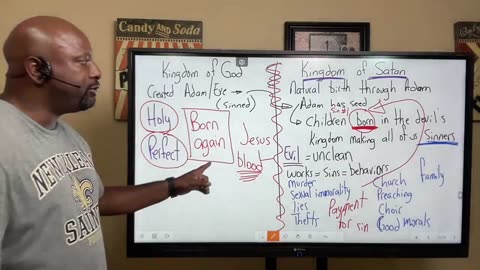 Candy AND Soda
POP
Kingdom of God
Created Adam/Eve
(Sinned)
Holy
Perfect
Born
again
Jesus
blood
Kingdom of Satan
Natural birth through Adam
Adam has seed
Children born in the devil's
Kingdom making all of us Sinners
Evil = unclean
works = Sins = behaviors
Murder
Sexual immorality
Lies
Thefts
Payment
for sin
Church
Family
Preaching
Choir
Good morals
NEW ORLEANS
SAINTS